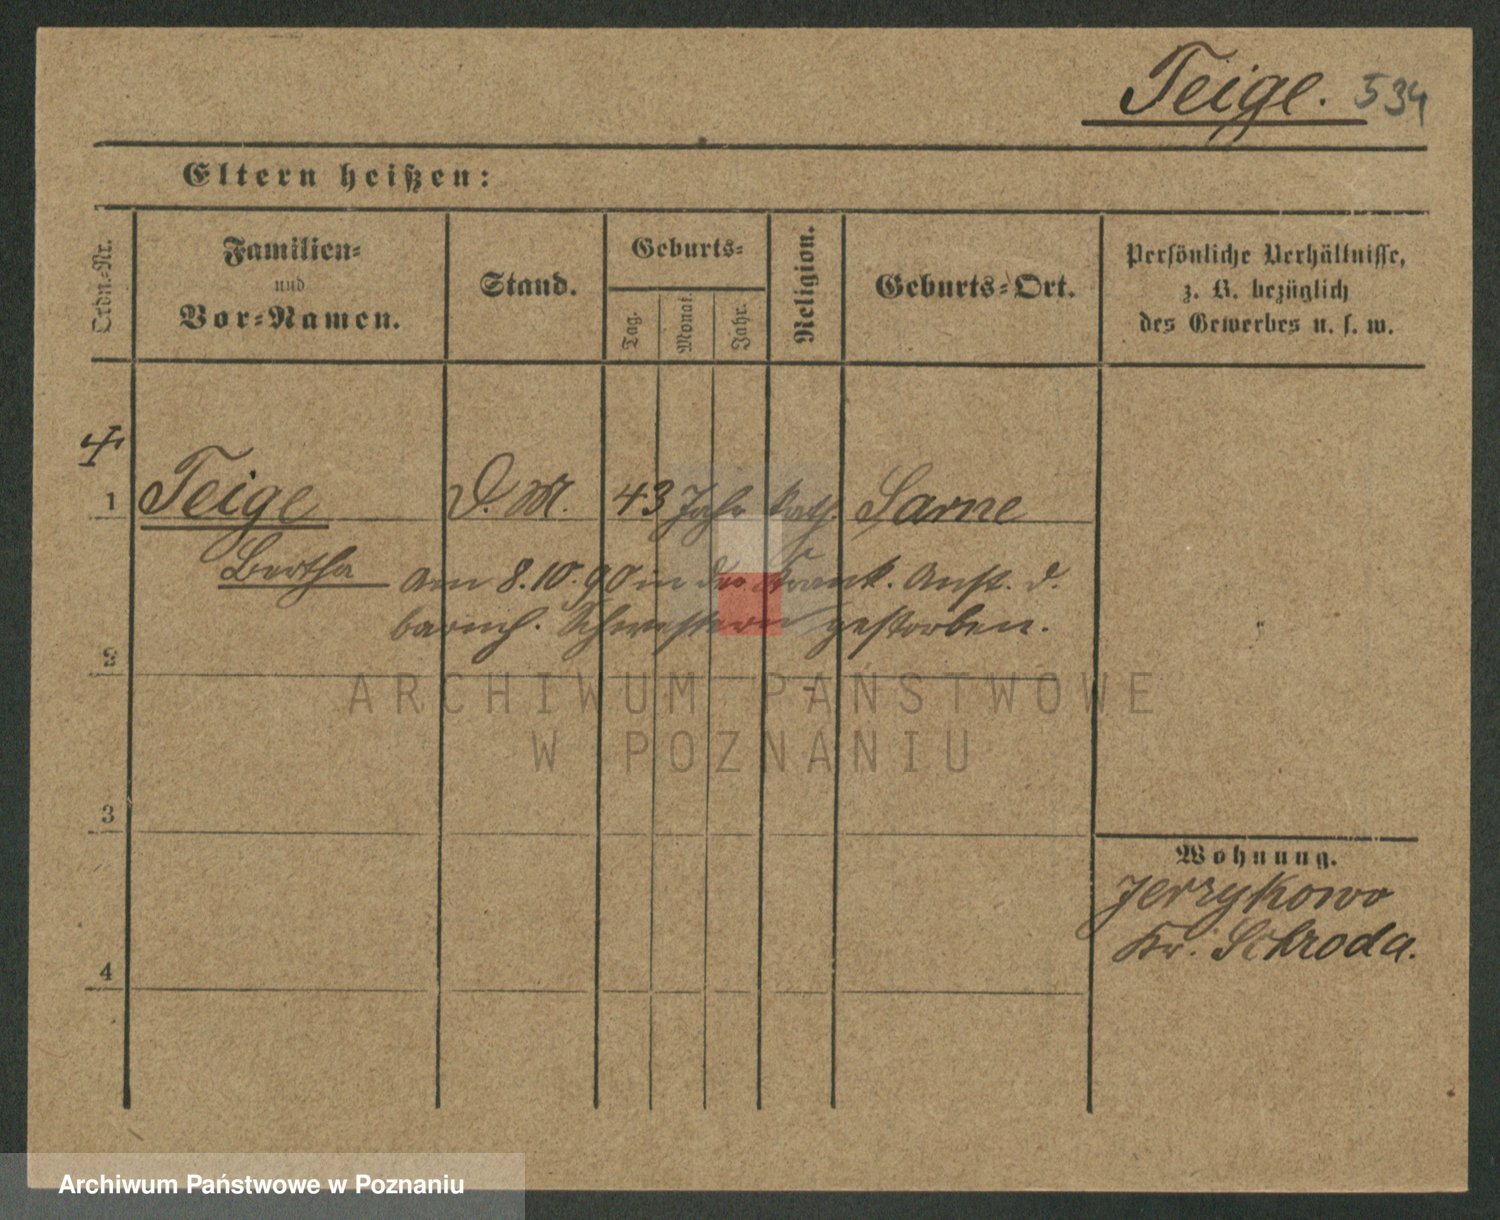 Teige. 534
Eltern heißen:
Ordn.-Nr.
Familien-
und
Vor-Namen.
Stand.
Geburts-
Tag.
Monat.
Jahr.
Religion.
Geburts-Ort.
Persönliche Verhältnisse,
z. B. bezüglich
des Gewerbes u. s. w.
1 Teige D. M. 43 Jahr kath. Sarne
Bertha am 8.10.90 in der Krank. Anst. d.
barmh. Schwestern gestorben.
2
ARCHIWUM PAŃSTWOWE
W POZNANIU
3
Wohnung.
Jerzykowo
Kr. Schroda.
4
Archiwum Państwowe w Poznaniu